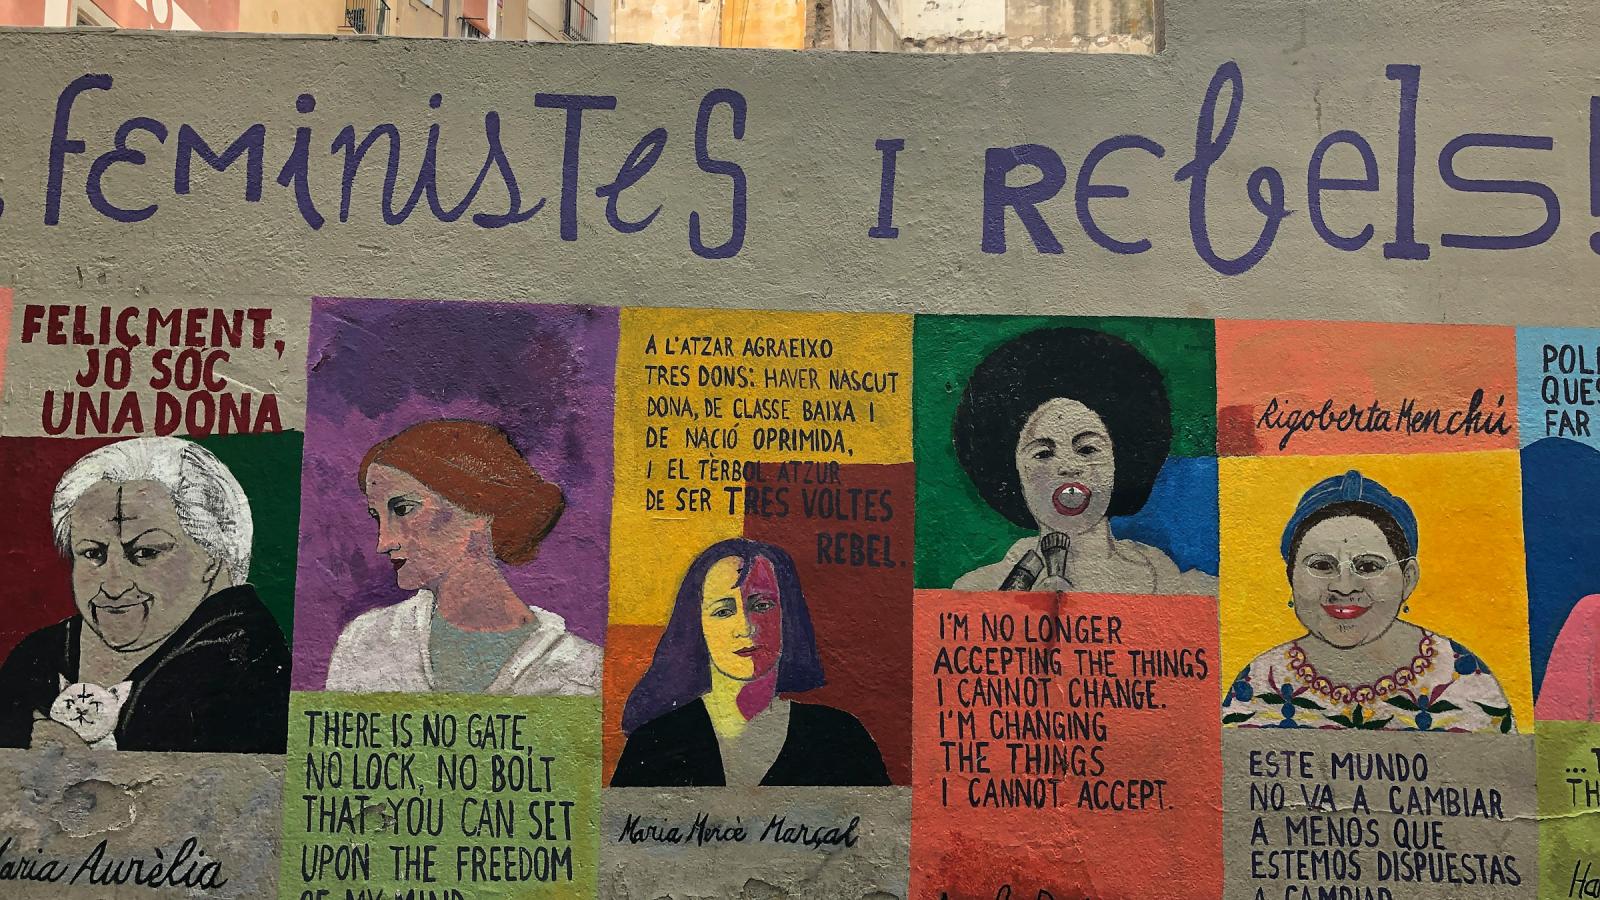 FEMINISTES I REBELS!
FELIÇMENT,
JO SÓC
UNA DONA
Maria Aurèlia
THERE IS NO GATE,
NO LOCK, NO BOLT
THAT YOU CAN SET
UPON THE FREEDOM
OF MY MIND
A L'ATZAR AGRAEIXO
TRES DONS: HAVER NASCUT
DONA, DE CLASSE BAIXA I
DE NACIÓ OPRIMIDA,
I EL TÈRBOL ATZUR
DE SER TRES VOLTES
REBEL.
Maria Mercè Marçal
I'M NO LONGER
ACCEPTING THE THINGS
I CANNOT CHANGE.
I'M CHANGING
THE THINGS
I CANNOT ACCEPT.
Rigoberta Menchú
ESTE MUNDO
NO VA A CAMBIAR
A MENOS QUE
ESTEMOS DISPUESTAS
A CAMBIAR
FAR